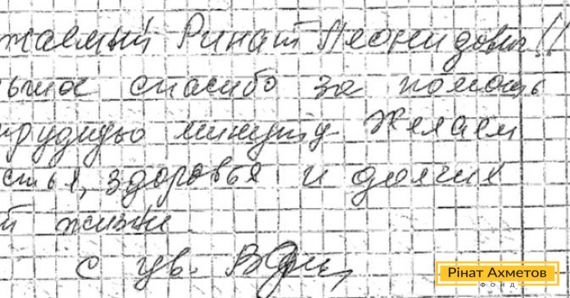 жаемый Ринат Леонидович!!
ьшое спасибо за помощь
трудную минуту. Желаем
стья, здоровья и долгих
й жизни.
с ув.
Рінат Ахметов
ФОНД